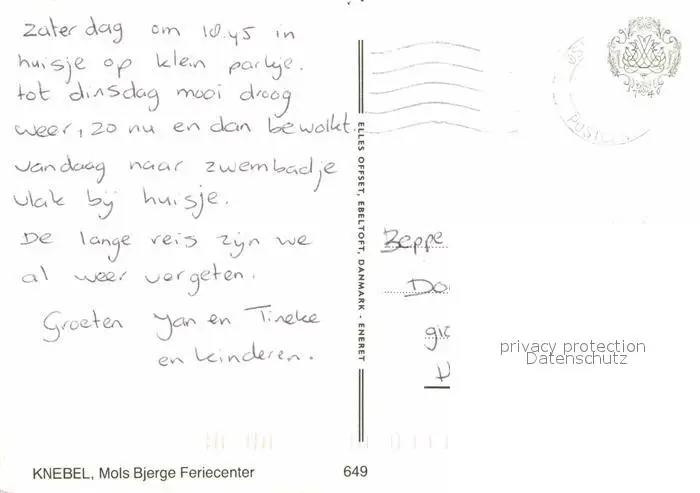 Zaterdag om 10.45 in
huisje op klein parkje.
tot dinsdag mooi droog
weer, zo nu en dan bewolkt.
vandaag naar zwembadje
vlak bij huisje.
De lange reis zijn we
al weer vergeten.
Groeten Jan en Tineke
en kinderen.
ELLES OFFSET, EBELTOFT, DANMARK · ENERET
Beppe
Do
gic
privacy protection
Datenschutz
KNEBEL, Mols Bjerge Feriecenter
649